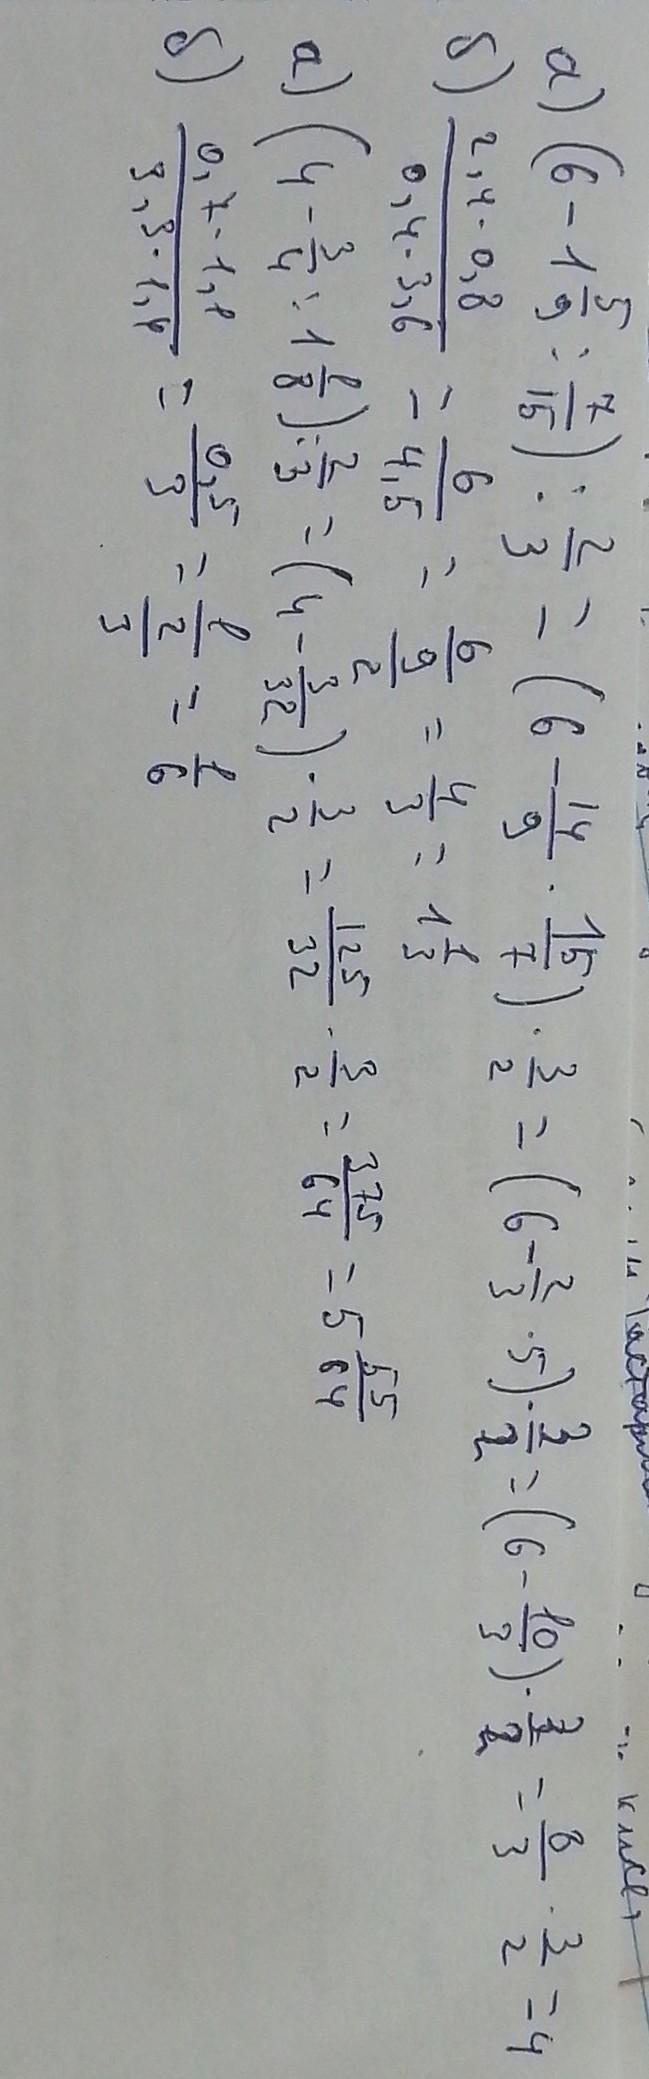 а) (6 - 1 5/9 : 7/15) : 2/3 = (6 - 14/9 · 15/7) · 3/2 = (6 - 2/3 · 5) · 3/2 = (6 - 10/3) · 3/2 = 8/3 · 3/2 = 4
б) 2,4 · 0,8 / 0,4 · 3,6 = 6/4,5 = 6/(9/2) = 4/3 = 1 1/3
а) (4 - 3/4 : 1 1/8) : 2/3 = (4 - 3/32) · 3/2 = 125/32 · 3/2 = 375/64 = 5 55/64
б) 0,7 · 1,1 / 3,3 · 1,4 = 0,5/3 = (1/2)/3 = 1/6